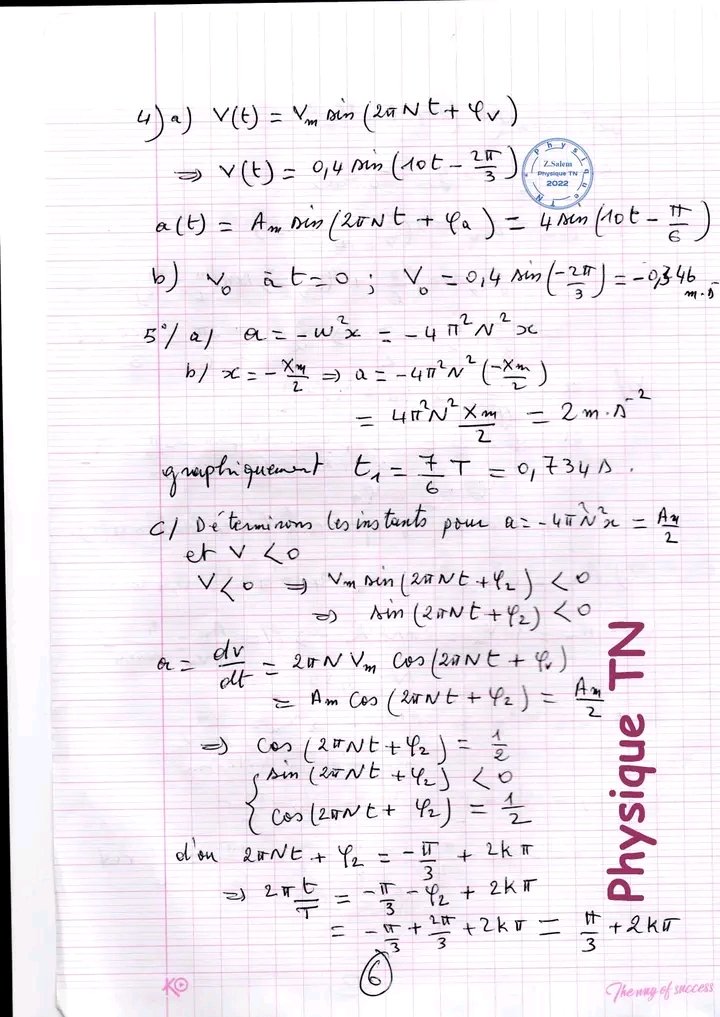 4) a) V(t) = Vm sin (2πNt + φv)
⇒ V(t) = 0,4 sin (10t - 2π/3)
Physique TN
Z.Salem
Physique TN
2022
a(t) = Am sin (2πNt + φa) = 4 sin (10t - π/6)
b) V₀ à t=0 ; V₀ = 0,4 sin (-2π/3) = -0,346 m.s
5°/ a/ a = -w²x = -4π²N²x
b/ x = -Xm/2 ⇒ a = -4π²N² (-Xm/2)
= 4π²N² Xm/2 = 2 m.s⁻²
graphiquement t₁ = 7/6 T = 0,734 s.
C/ Déterminons les instants pour a = -4π²N²x = Am/2
et V <0
V<0 ⇒ Vm sin (2πNt + φ₂) <0
⇒ sin (2πNt + φ₂) <0
a = dv/dt = 2πN Vm Cos (2πNt + φv)
= Am Cos (2πNt + φ₂) = Am/2
⇒ Cos (2πNt + φ₂) = 1/2
{ sin (2πNt + φ₂) < 0
cos (2πNt + φ₂) = 1/2
d'ou 2πNt + φ₂ = -π/3 + 2kπ
⇒ 2π t/T = -π/3 - φ₂ + 2kπ
= -π/3 + 2π/3 + 2kπ = π/3 + 2kπ
6
Physique TN
KO
The way of success